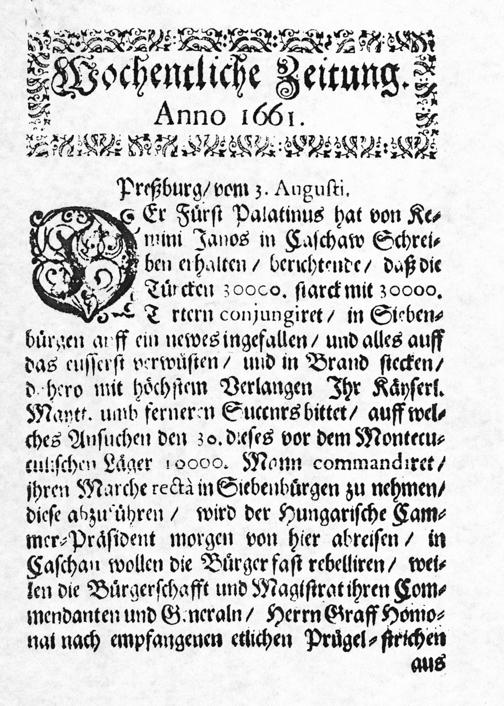 Wochentliche Zeitung.
Anno 1661.
Preßburg/ vom 3. Augusti.
DEr Fürst Palatinus hat von Ke-
mini Janos in Caschaw Schrei-
ben erhalten / berichtende / daß die
Türcken 30000. starck mit 30000.
T rtern conjungiret / in Sieben-
bürgen auff ein newes ingefallen / und alles auff
das eusserst verwüsten / und in Brand stecken/
dahero mit höchstem Verlangen Ihr Käyserl.
Maytt. umb ferneren Succurs bittet / auff wel-
ches Ansuchen den 30. dieses vor dem Montecu-
culischen Läger 10000. Mann commandiret/
ihren Marche rectà in Siebenbürgen zu nehmen/
diese abzuführen / wird der Hungarische Cam-
mer-Präsident morgen von hier abreisen / in
Caschau wollen die Bürger fast rebelliren / wei-
len die Bürgerschafft und Magistrat ihren Com-
mendanten und Generaln / Herrn Graff Homo-
nai nach empfangenen etlichen Prügel-strichen
aus